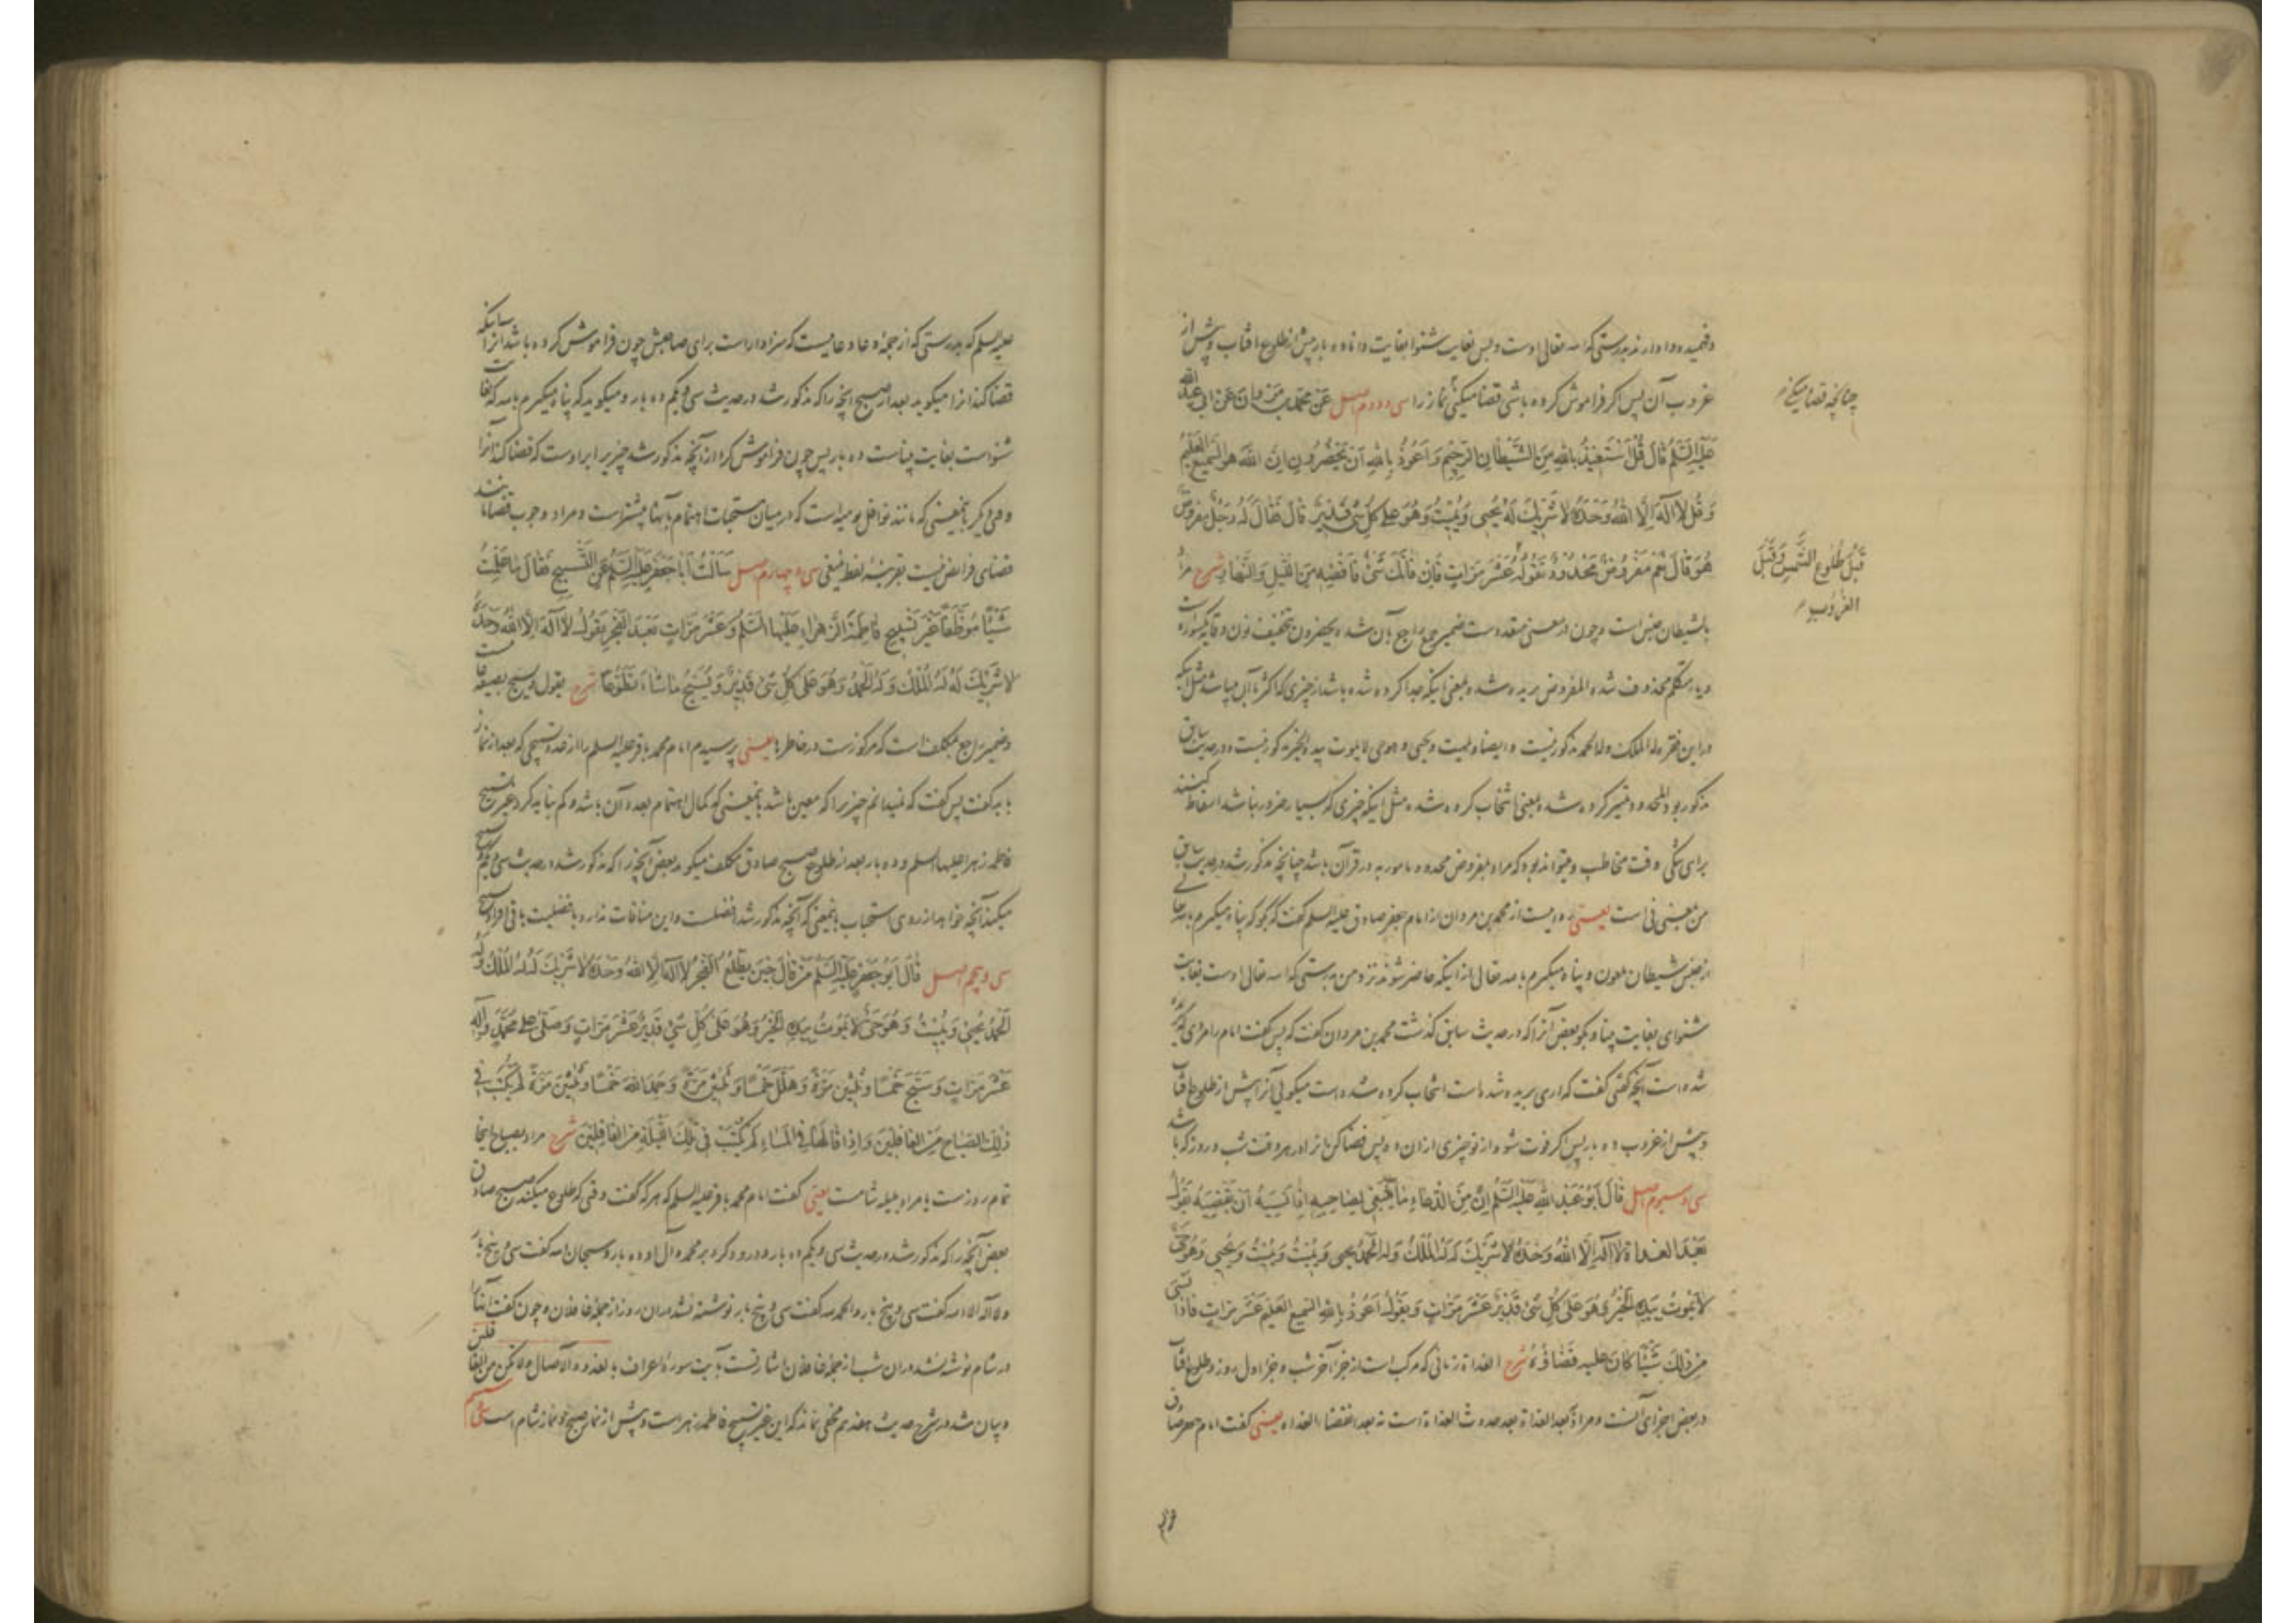 وفهمیده و ادا دارند بدرستی که الله تعالی اوست و بس بغایت شنوا بغایت دانا ده بار پیش از طلوع افتاب و پیش از
غروب آن پس اکر فراموش کرده باشی قضا میکنی نماز را سی و دوم اصل عَنْ مُحَمَّدِ بْنِ مَرْوانَ عَنْ ابی عبدالله
عَلَیْهِ السَّلَمُ قَالَ قُلْ اَسْتَعِیْذُ بِاللهِ مِنَ الشَّیْطَانِ الرَّجِیْمِ وَ اَعُوْذُ بِاللهِ اَنْ یَحْضُرُونِ اِنَّ اللهَ هُوَ السَّمِیعُ الْعَلِیْمُ
وَ قُلْ لَا اِلٰهَ اِلَّا اللهُ وَحْدَهُ لَا شَرِیْكَ لَهُ یُحْیِی وَیُمِیْتُ وَهُوَ عَلٰی كُلِّ شَیْءٍ قَدِیْرٌ قَالَ فَقَالَ لَهُ رَجُلٌ مَفْرُوضٌ
هُوَ قَالَ نَعَمْ مَفْرُوضٌ مَحْدُودٌ تَقُولُهُ عَشْرَ مَرَّاتٍ فَاِنْ فَاتَكَ شَیْءٌ فَاقْضِهِ مِنَ اللَّیْلِ وَالنَّهَارِ شرح مراد
بالشیطان جنس است و چون در معنی متعدد ست ضمیر جمع راجع بآن شده یحضرون بتخفیف نون وقایه مکسوره است
ویاء متکلم محذوف شده المفروض بریده شده بمعنی اینکه جدا کرده شده باشد از چیزی که اکثر آن میباشد مثل اینکه
در این فقره له الملک وله الحمد مذکور نیست و ایضا ویمیت ویحیی و هو حی لا یموت بیده الخیر مذکور نیست و در حدیث سابق
مذکور بود والمحدود متمیز کرده شده بمعنی انتخاب کرده شده مثل اینکه چیزی که بسیار ضرور نباشد اسقاط کنند
برای تنکی وقت مخاطب و میتواند بود که مراد بمفروض محدود مامور به در قرآن باشد چنانچه مذکور شد در حدیث سابق
من بمعنی فی است یعنی روایت از محمد بن مروان از امام جعفر صادق علیه السلم گفت که بکو که پناه میکیرم بالله تعالی
از جنس شیطان ملعون و پناه میکیرم بالله تعالی از اینکه حاضر شوند نزد من بدرستی که الله تعالی اوست بغایت
شنوای بغایت بینا و بکو بعض آنرا که در حدیث سابق گذشت محمد بن مروان گفت که پس گفت امام را مردی که بریده
شده است آنچه گفتی گفت که اری بریده شده است انتخاب کرده شده است میکوئی آنرا پیش از طلوع افتاب
و پیش از غروب ده بار پس اکر فوت شود از تو چیزی از ان ده پس قضا کن انرا در هر وقت شب و روز که باشد
سی و سیوم اصل قَالَ اَبُو عَبْدِ اللهِ عَلَیْهِ السَّلَمُ اِنَّ مِنَ الدُّعَاءِ مَا یَنْبَغِی لِصَاحِبِهِ اِذَا نَسِیَهُ اَنْ یَقْضِیَهُ یَقُولُ
بَعْدَ الْغَداةِ لَا اِلٰهَ اِلَّا اللهُ وَحْدَهُ لَا شَرِیْكَ لَهُ لَهُ الْمُلْكُ وَلَهُ الْحَمْدُ یُحْیِی وَیُمِیْتُ وَیُمِیْتُ وَیُحْیِی وَهُوَ حَیٌّ
لَا یَمُوْتُ بِیَدِهِ الْخَیْرُ وَهُوَ عَلٰی كُلِّ شَیْءٍ قَدِیْرٌ عَشْرَ مَرَّاتٍ وَیَقُولُ اَعُوْذُ بِاللهِ السَّمِیعِ الْعَلِیمِ عَشْرَ مَرَّاتٍ فَاِذَا نَسِیَ
مِنْ ذٰلِكَ شَیْئًا كَانَ عَلَیْهِ قَضَاؤُهُ شرح الغداة زمانی که مرکب است از جزء آخر شب و جزء اول روز و طلوع افتاب
در بعض اجزای آنست و مراد ببعد الغداة بعد حدوث الغداة است نه بعد انقضاء الغداه یعنی گفت امام جعفر صادق
چنانچه قضا میکنی م
قَبْلَ طُلُوعِ الشَّمْسِ وَقَبْلَ
الغُرُوبِ م
علیه السلم که بدرستی که از جمله دعا دعائیست که سزاوار است برای صاحبش چون فراموش کرده باشد انرا اینکه
قضا کند انرا میکوید بعد از صبح آنچه را که مذکور شد در حدیث سی و یکم ده بار و میکوید که پناه میکیرم بالله که بغایت
شنواست بغایت بیناست ده بار پس چون فراموش کرد از آنچه مذکور شد چیزیرا بر اوست که قضا کند آنرا
قضای فرائض نیست بقرینه لفظ ینبغی سی و چهارم اصل سَاَلْتُ اَبَا جَعْفَرٍ عَلَیْهِ السَّلَمُ عَنِ التَّسْبِیحِ فَقَالَ مَا عَلِمْتُ
شَیْئًا مُوَظَّفًا غَیْرَ تَسْبِیحِ فَاطِمَةَ الزَّهْرَاءِ عَلَیْهَا السَّلَمُ وَعَشْرَ مَرَّاتٍ بَعْدَ الْفَجْرِ یَقُولُ لَا اِلٰهَ اِلَّا اللهُ وَحْدَهُ
لَا شَرِیْكَ لَهُ لَهُ الْمُلْكُ وَلَهُ الْحَمْدُ وَهُوَ عَلٰی كُلِّ شَیْءٍ قَدِیْرٌ وَیُسَبِّحُ مَا شَاءَ تَطَوُّعًا شرح یقول ویسبح بصیغه غایب است
وضمیر راجع بمکلف است که مرکوز ست در خاطرها یعنی پرسیدم امام محمد باقر علیه السلم را از قدر تسبیحی که بعد از نماز
باید گفت پس گفت که نمیدانم چیزیرا که معین باشد بمعنی که کمال اهتمام بعدد آن باشد و کم نباید کرد غیر تسبیح
فاطمه زهرا علیها السلم و ده بار بعد از طلوع صبح صادق مکلف میکوید بعض آنچه را که مذکور شد در حدیث سی و یکم و تسبیح
میکند آنچه خواهد از روی استحباب بمعنی که آنچه مذکور شد افضلست و این منافات ندارد با فضیلت باقی افراد تسبیح
سی و پنجم اصل قَالَ اَبُو جَعْفَرٍ عَلَیْهِ السَّلَمُ مَنْ قَالَ حِیْنَ یَطْلُعُ الْفَجْرُ لَا اِلٰهَ اِلَّا اللهُ وَحْدَهُ لَا شَرِیْكَ لَهُ لَهُ الْمُلْكُ وَلَهُ
الْحَمْدُ یُحْیِی وَیُمِیْتُ وَهُوَ حَیٌّ لَا یَمُوْتُ بِیَدِهِ الْخَیْرُ وَهُوَ عَلٰی كُلِّ شَیْءٍ قَدِیْرٌ عَشْرَ مَرَّاتٍ وَصَلّٰی عَلٰی مُحَمَّدٍ وَآلِهِ
عَشْرَ مَرَّاتٍ وَسَبَّحَ خَمْسًا وَثَلٰثِیْنَ مَرَّةً وَهَلَّلَ خَمْسًا وَثَلٰثِیْنَ مَرَّةً وَحَمِدَ اللهَ خَمْسًا وَثَلٰثِیْنَ مَرَّةً لَمْ یُكْتَبْ فِی
ذٰلِكَ الصَّبَاحِ مِنَ الْغَافِلِیْنَ وَاِذَا قَالَهَا فِی الْمَسَاءِ لَمْ یُكْتَبْ فِی تِلْكَ اللَّیْلَةِ مِنَ الْغَافِلِیْنَ شرح مراد بصباح اینجا
تمام روز ست یا مراد بلیله شامست یعنی گفت امام محمد باقر علیه السلم که هر که گفت وقتی که طلوع میکند صبح صادق
بعض آنچه را که مذکور شد در حدیث سی و یکم ده بار و درود کرد بر محمد و آل او ده بار و سبحان الله گفت سی و پنج بار
ولا اله الا الله گفت سی و پنج بار و الحمد لله گفت سی و پنج بار نوشته نشد در ان روز از جمله غافلان و چون گفت اینها را
در شام نوشته نشد در ان شب از جمله غافلان اشارتست بآیت سورهٔ اعراف بالغدو والآصال ولا تکن من الغافلین
وبیان شد در شرح حدیث هفدهم مخفی نماند که این غیر تسبیح فاطمه زهراست و پیش از نماز صبح و نماز شام است